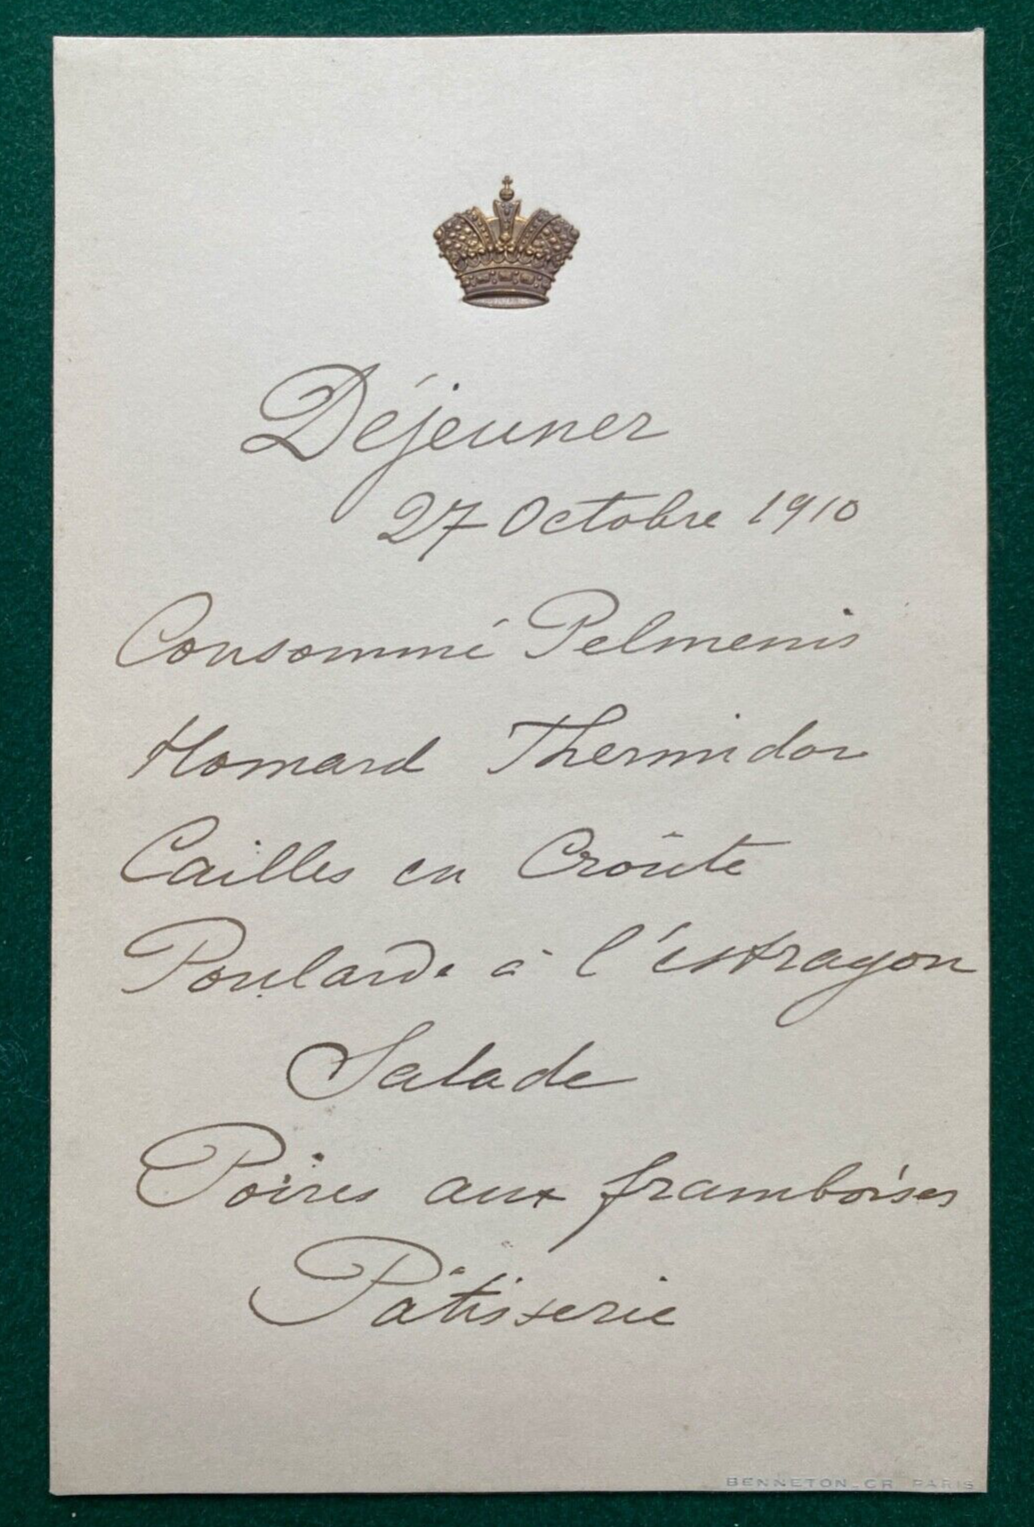 Déjeuner
27 Octobre 1910
Consommé Pelmenis
Homard Thermidor
Cailles en Croûte
Poularde à l'estragon
Salade
Poires aux framboises
Pâtisserie
BENNETON_GR. PARIS